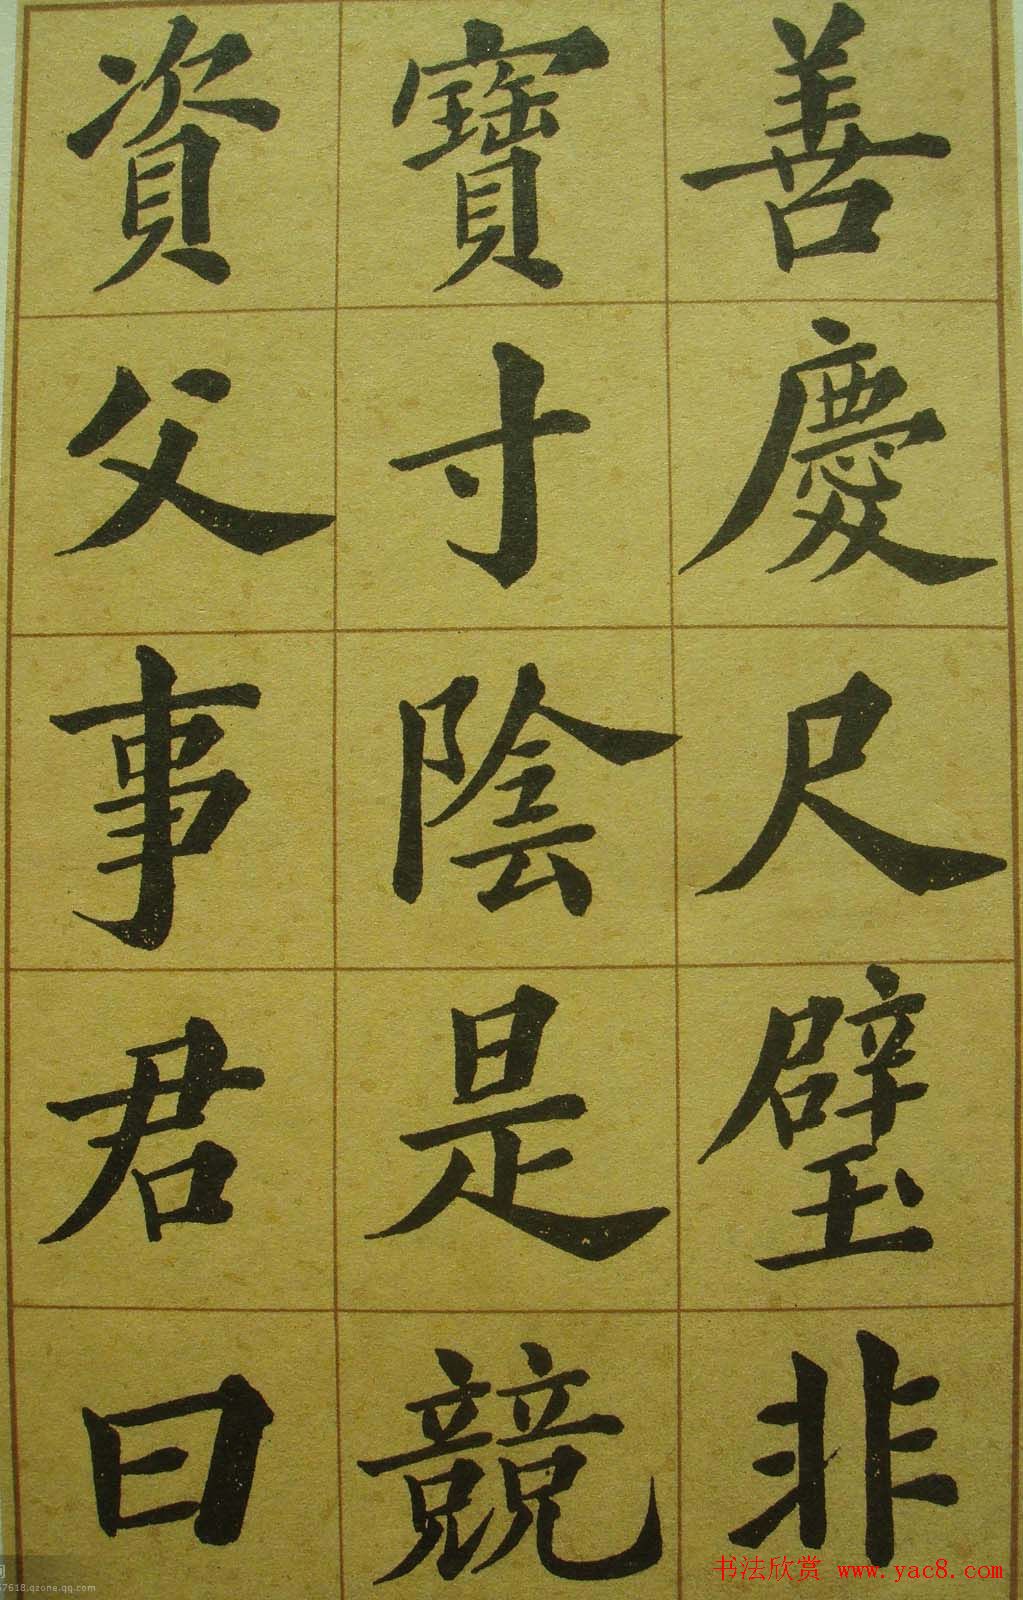 善慶尺璧非
寶寸陰是競
資父事君曰
书法欣赏 www.yac8.com
57618.qzone.qq.com